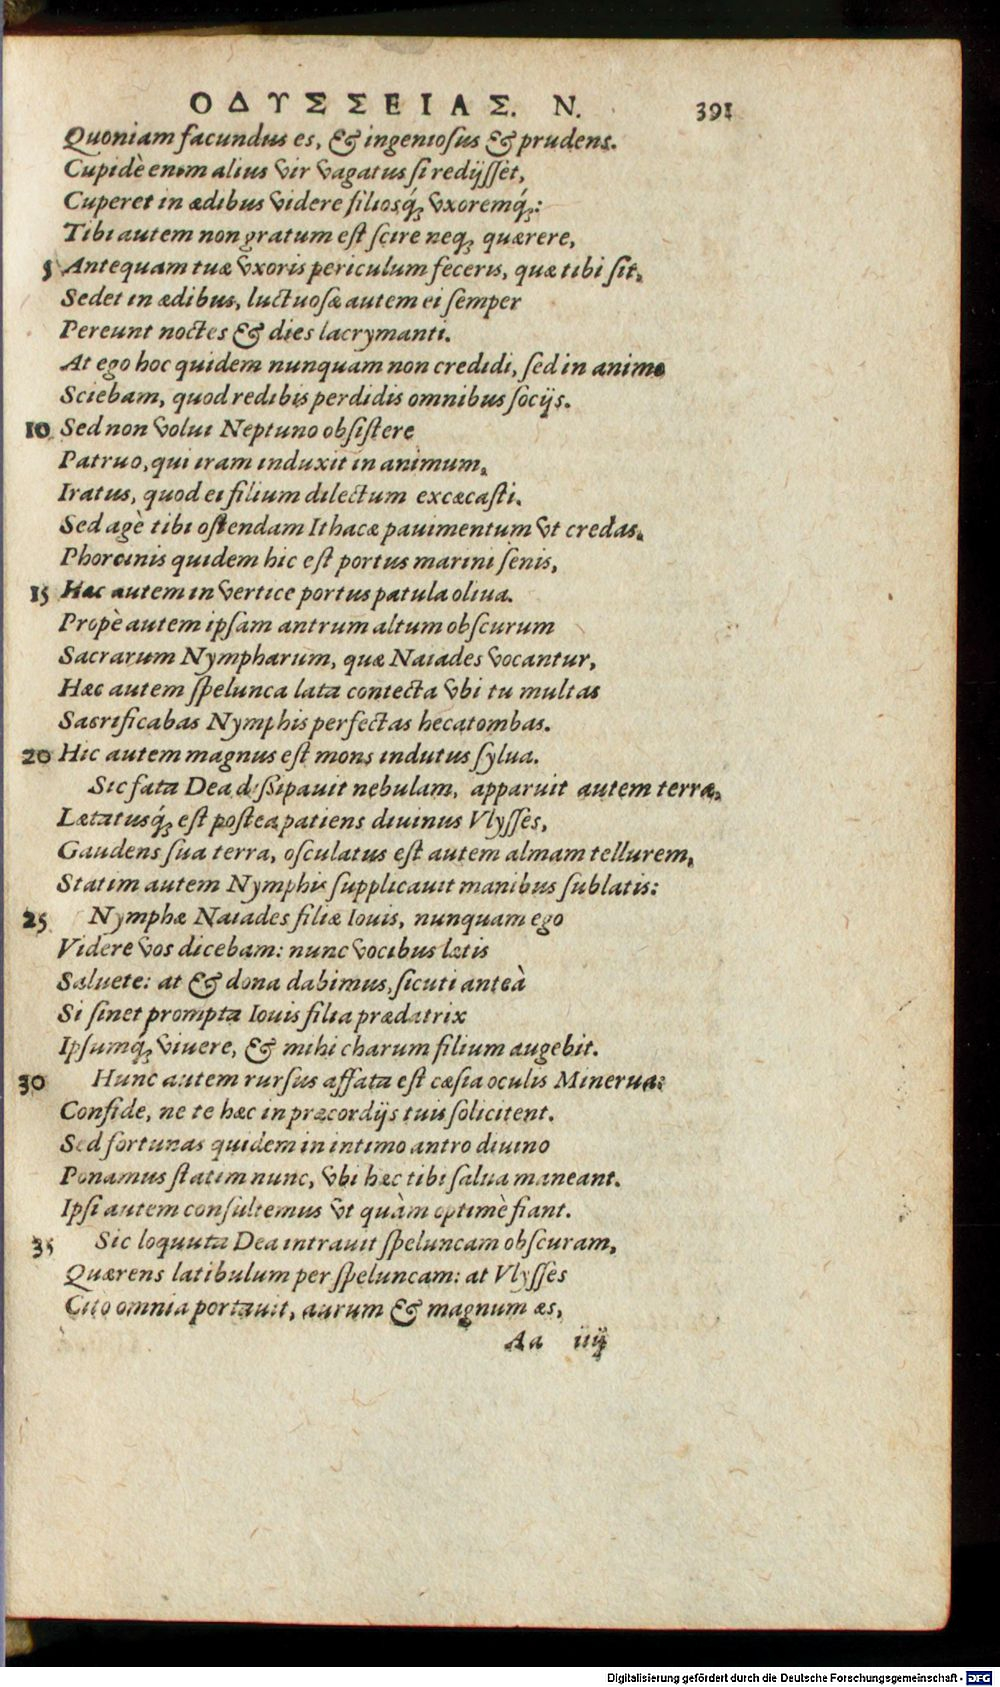 ΟΔΥΣΣΕΙΑΣ. Ν. 391
Quoniam facundus es, & ingeniosus & prudens.
Cupidè enim alius vir vagatus si redijsset,
Cuperet in ædibus videre filiosq́; vxoremq́;:
Tibi autem non gratum est scire neq; quærere,
5 Antequam tuæ vxoris periculum feceris, quæ tibi sit,
Sedet in ædibus, luctuosæ autem ei semper
Pereunt noctes & dies lacrymanti.
At ego hoc quidem nunquam non credidi, sed in animo
Sciebam, quod redibis perdidis omnibus socijs.
10 Sed non volui Neptuno obsistere
Patruo, qui iram induxit in animum,
Iratus, quod ei filium dilectum excæcasti.
Sed agè tibi ostendam Ithacæ pauimentum vt credas,
Phorcinis quidem hic est portus marini senis,
15 Hæc autem in vertice portus patula oliua.
Propè autem ipsam antrum altum obscurum
Sacrarum Nympharum, quæ Naiades vocantur,
Hæc autem spelunca lata contecta vbi tu multas
Sacrificabas Nymphis perfectas hecatombas.
20 Hic autem magnus est mons indutus sylua.
Sic fata Dea dissipauit nebulam, apparuit autem terræ,
Lætatusq́; est postea patiens diuinus Vlysses,
Gaudens sua terra, osculatus est autem almam tellurem,
Statim autem Nymphis supplicauit manibus sublatis:
25 Nymphæ Naiades filiæ Iouis, nunquam ego
Videre vos dicebam: nunc vocibus lætis
Saluete: at & dona dabimus, sicuti anteà
Si sinet prompta Iouis filia prædatrix
Ipsumq́; viuere, & mihi charum filium augebit.
30 Hunc autem rursus affata est cæsia oculis Minerua:
Confide, ne te hæc in præcordijs tuis solicitent.
Sed fortunas quidem in intimo antro diuino
Ponamus statim nunc, vbi hæc tibi salua maneant.
Ipsi autem consultemus vt quàm optimè fiant.
35 Sic loquuta Dea intrauit speluncam obscuram,
Quærens latibulum per speluncam: at Vlysses
Cito omnia portauit, aurum & magnum æs,
Aa iiij
Digitalisierung gefördert durch die Deutsche Forschungsgemeinschaft - DFG